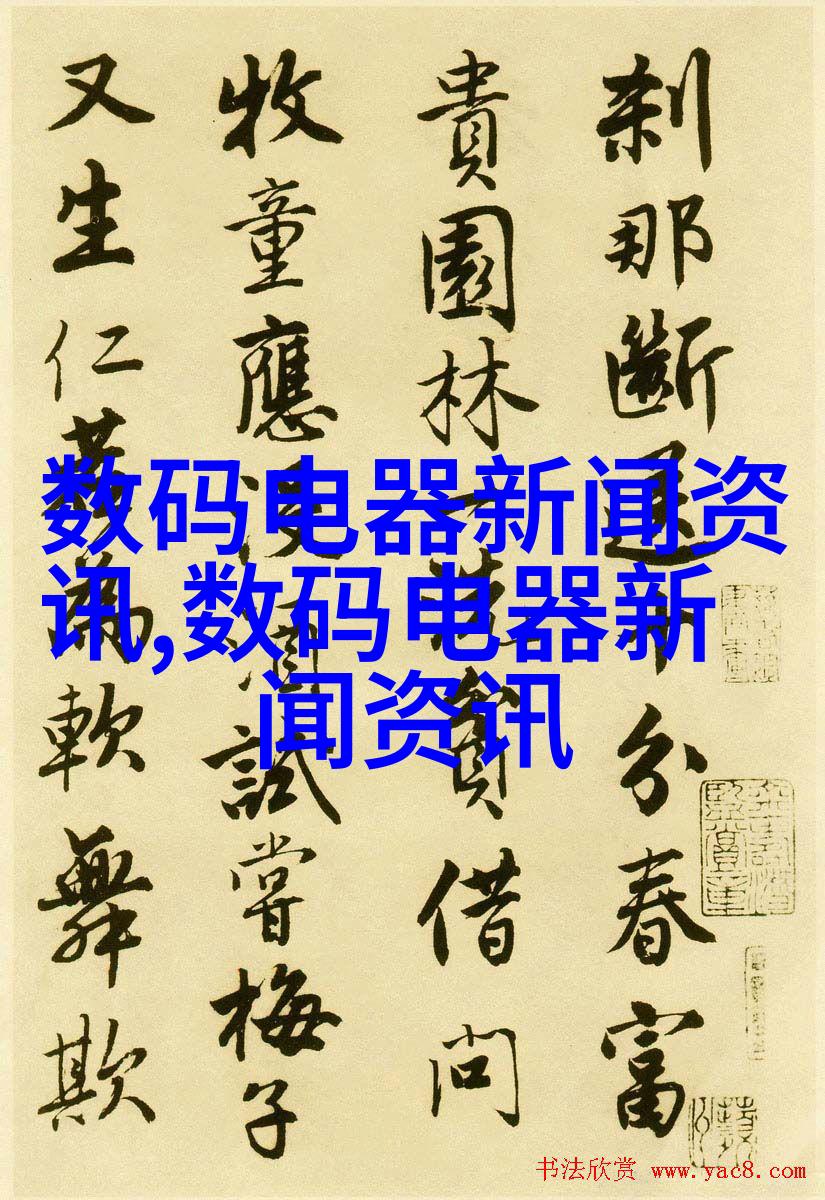 刹那斷送十分春富
貴園林一洗貧借問
牧童應沒酒試嘗梅子
又生仁若為軟舞欺
数码电器新闻资
讯,数码电器新
闻资讯
书法欣赏 www.yac8.com